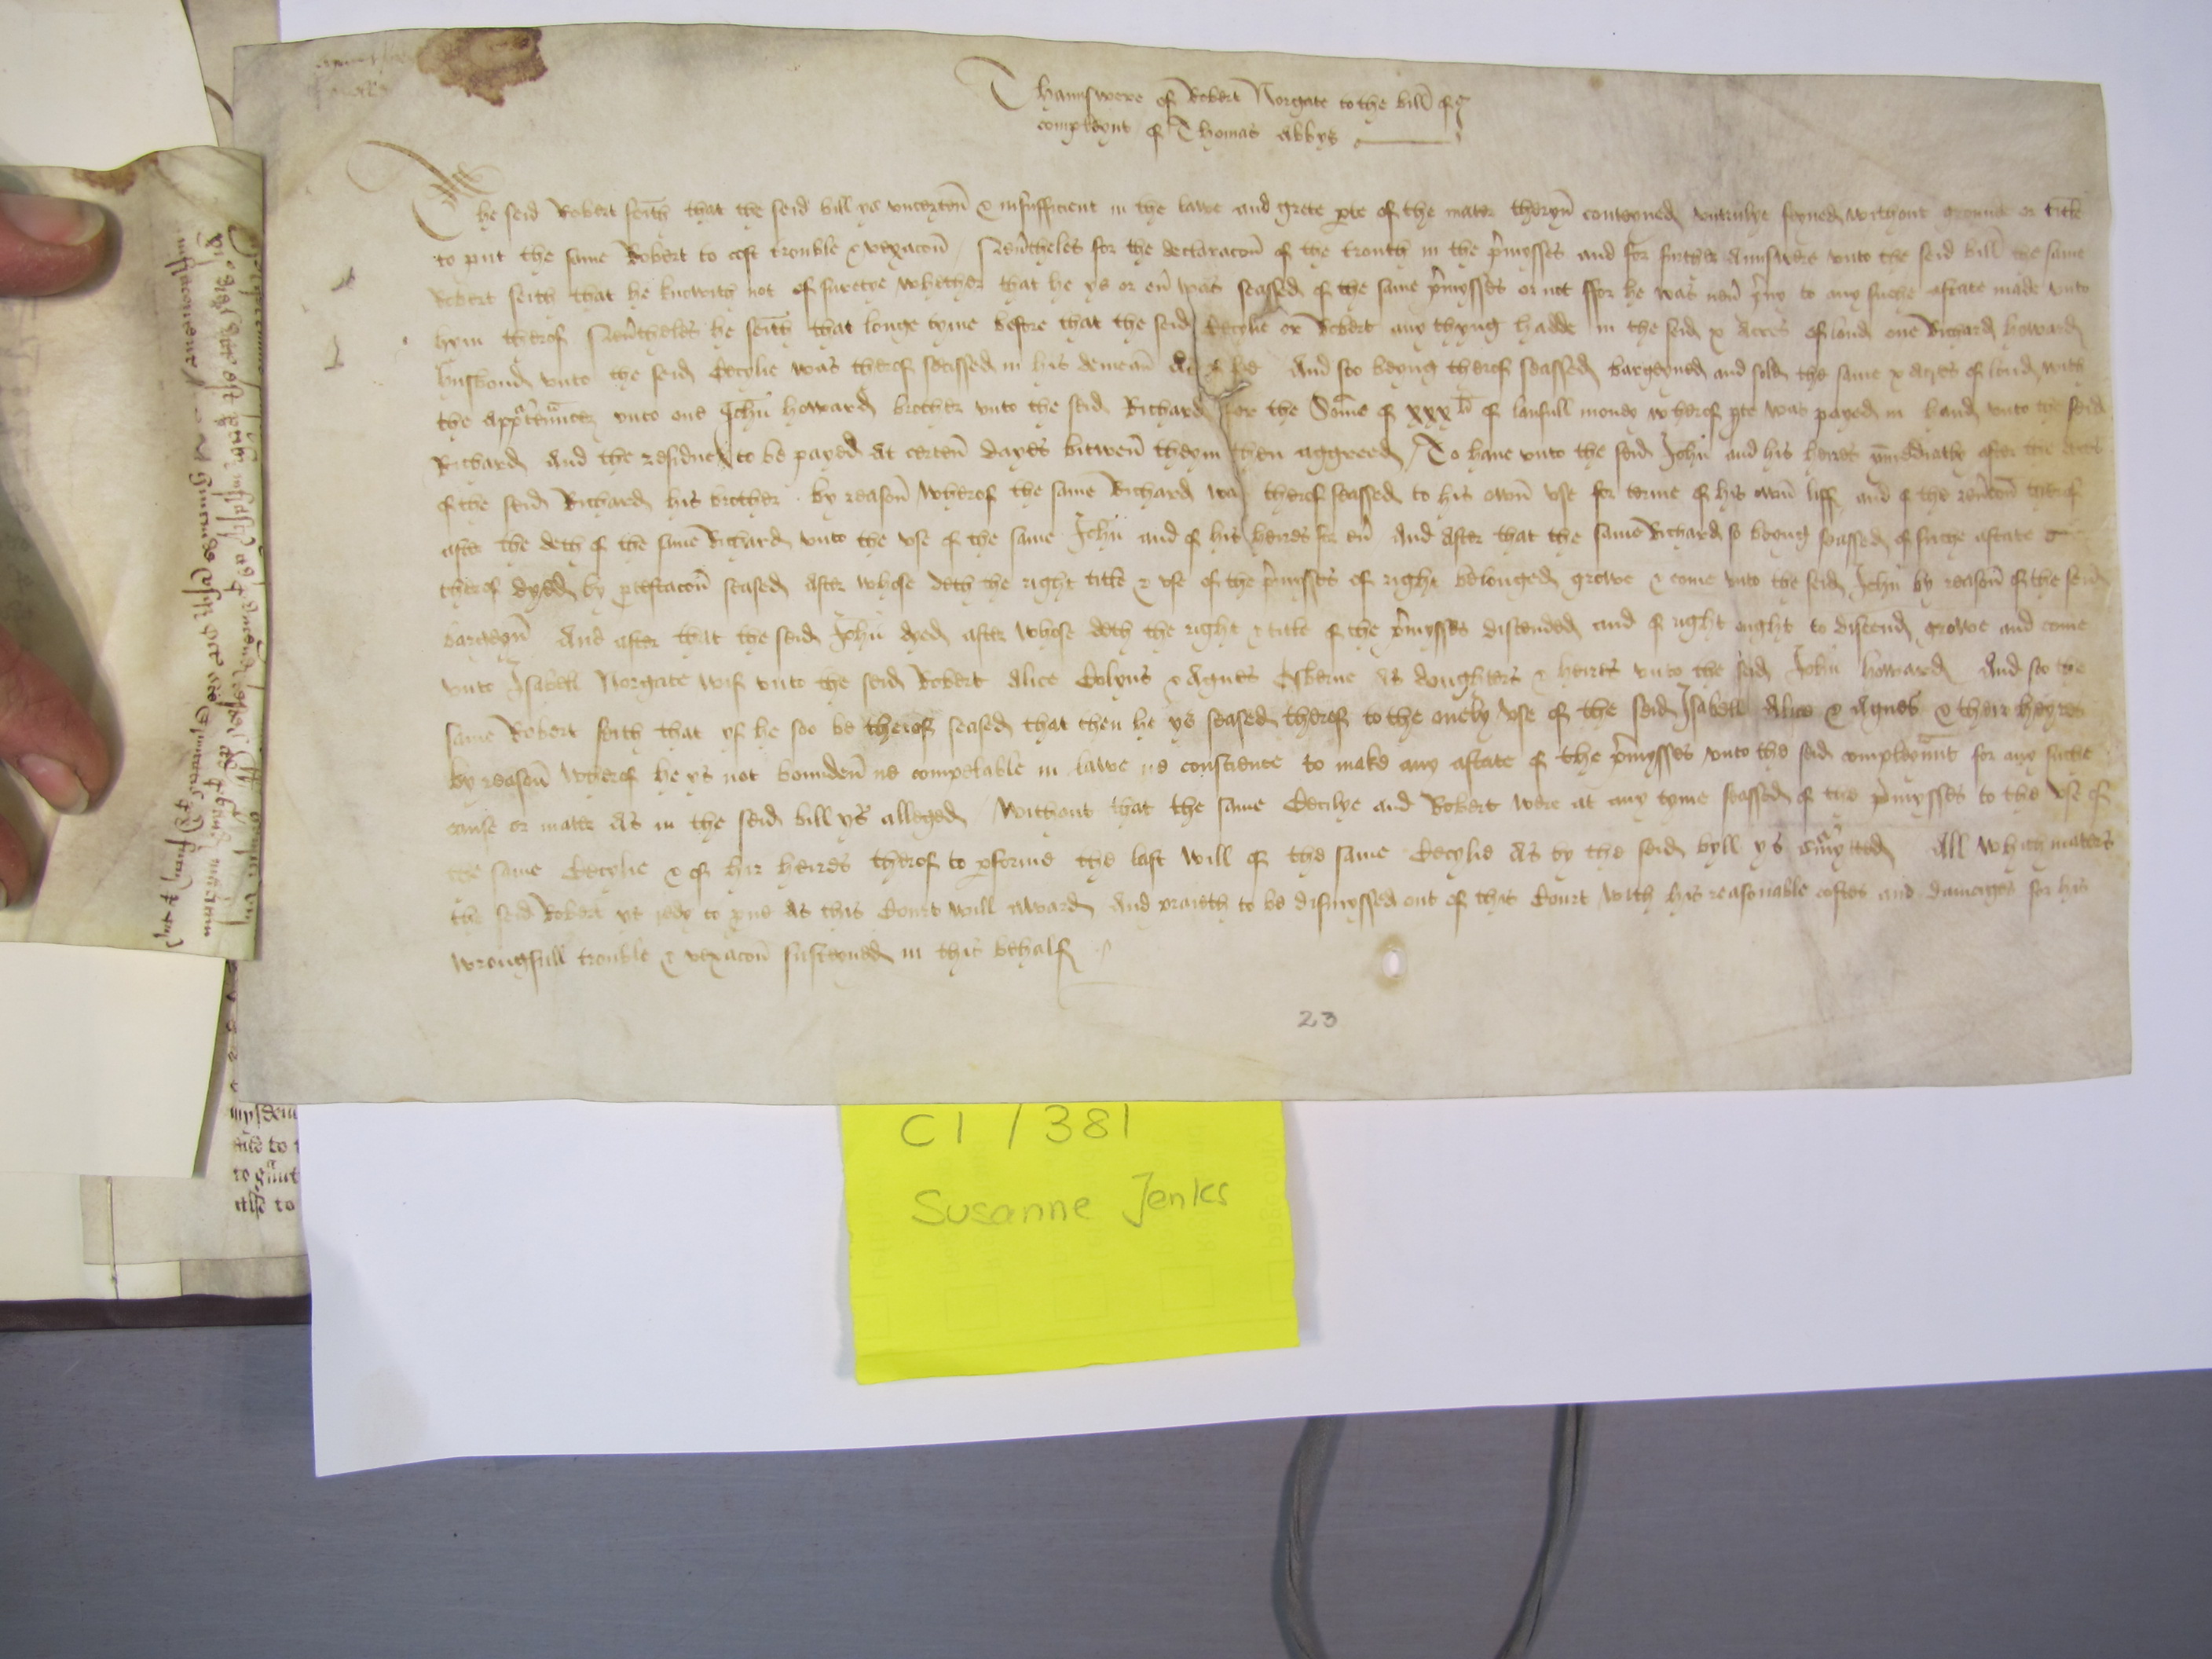 Thaunswere of Robert Norgate to the bill of
compleynt of Thomas Abbys
The seid Robert seith that the seid bill ys uncerten & insufficient in the lawe and grete pte of the mater theryn conteyned untrulye feyned without grounde or title
to put the same Robert to cost trouble & vexacon / Neutheles for the declaracon of the trouth in the pmysses and for further Aunswere unto the seid bill the same
Robert seith that he knowith not of suretye whether that he ys or eu was seassed of the same pmysses or not ffor he was neu pvy to any suche astate made unto
hym therof Neutheles he seith that longe tyme before that the seid Cecylie or Robert any thyng hadde in the seid x acres of lond one Richard howard
husbond unto the seid Cecylie was therof seassed in his demean As of fee And soo beyng therof seassed bargeyned and sold the same x acres of lond with
the appurtennces unto one John howard brother unto the seid Richard for the Some of xxx li of laufull money wherof pte was payed in hand unto the seid
Richard And the residue to be payed at certen dayes betwen theym then aggreed / To have unto the seid John and his heires ymediatly after the deth
of the seid Richard his brother by reason wherof the same Richard was therof seassed to his own use for terme of his own liff and of the reucon therof
after the deth of the same Richard unto the use of the same John and of his heires for eu And after that the same Richard so beyng seassed of suche astate
therof dyed by ptestacon seased after whose deth the right title & use of the pmysses of right belonged growe & come unto the seid John by reason of the seid
bargeyn And after that the seid John dyed after whose deth the right & title of the pmysses discended and of right ought to discend growe and come
unto Isabell Norgate wif unto the seid Robert Alice Colyns & Agnes Osberne as doughters & heires unto the seid John howard And soo the
same Robert seith that yf he soo be therof seased that then he ys seased therof to the onely use of the seid Isabell Alice & Agnes & their heyres
by reason wherof he ys not bounden ne compellable in lawe ne conscience to make any astate of the pmysses unto the seid compleynnt for any suche
cause or mater As in the seid bill ys alleged / Without that the same Cecilye and Robert were at any tyme seassed of the pmysses to the use of
the same Cecylie & of hir heires therof to pforme the last will of the same Cecylie As by the seid byll ys All which maters
the seid Robert ys redy to pve as this Court will award And praieth to be dismyssed out of this Court with his reasonable costes and damages for his
wrongfull trouble & vexacon susteyned in this behalf
23
C1 / 381
Susanne Jenks